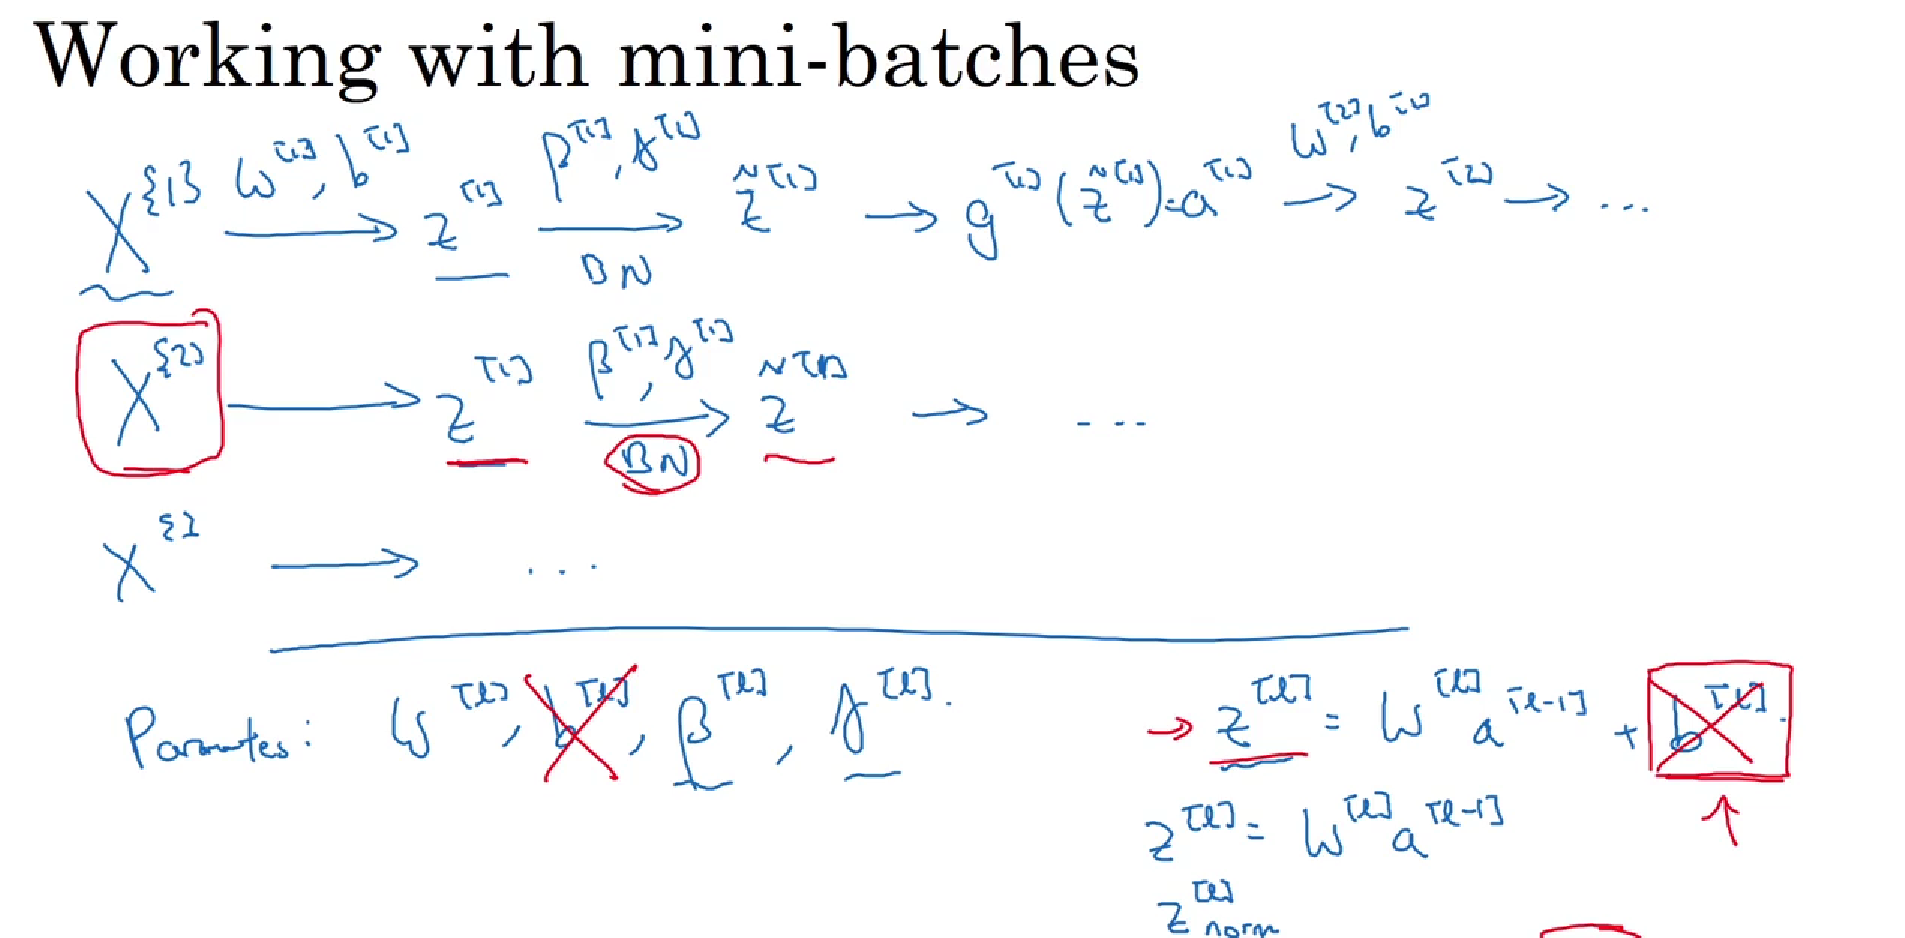 Working with mini-batches
X^{1} W^[1], b^[1] → z^[1] β^[1], γ^[1] → BN z̃^[1] → g^[1](z̃^[1]) = a^[1] W^[2], b^[2] → z^[2] → ...
X^{2} → z^[1] β^[1], γ^[1] → BN z̃^[1] → ...
X^{3} → ...
Parameters: W^[l], b^[l], β^[l], γ^[l]. → z^[l] = W^[l] a^[l-1] + b^[l].
z^[l] = W^[l] a^[l-1]
z^[l]_norm